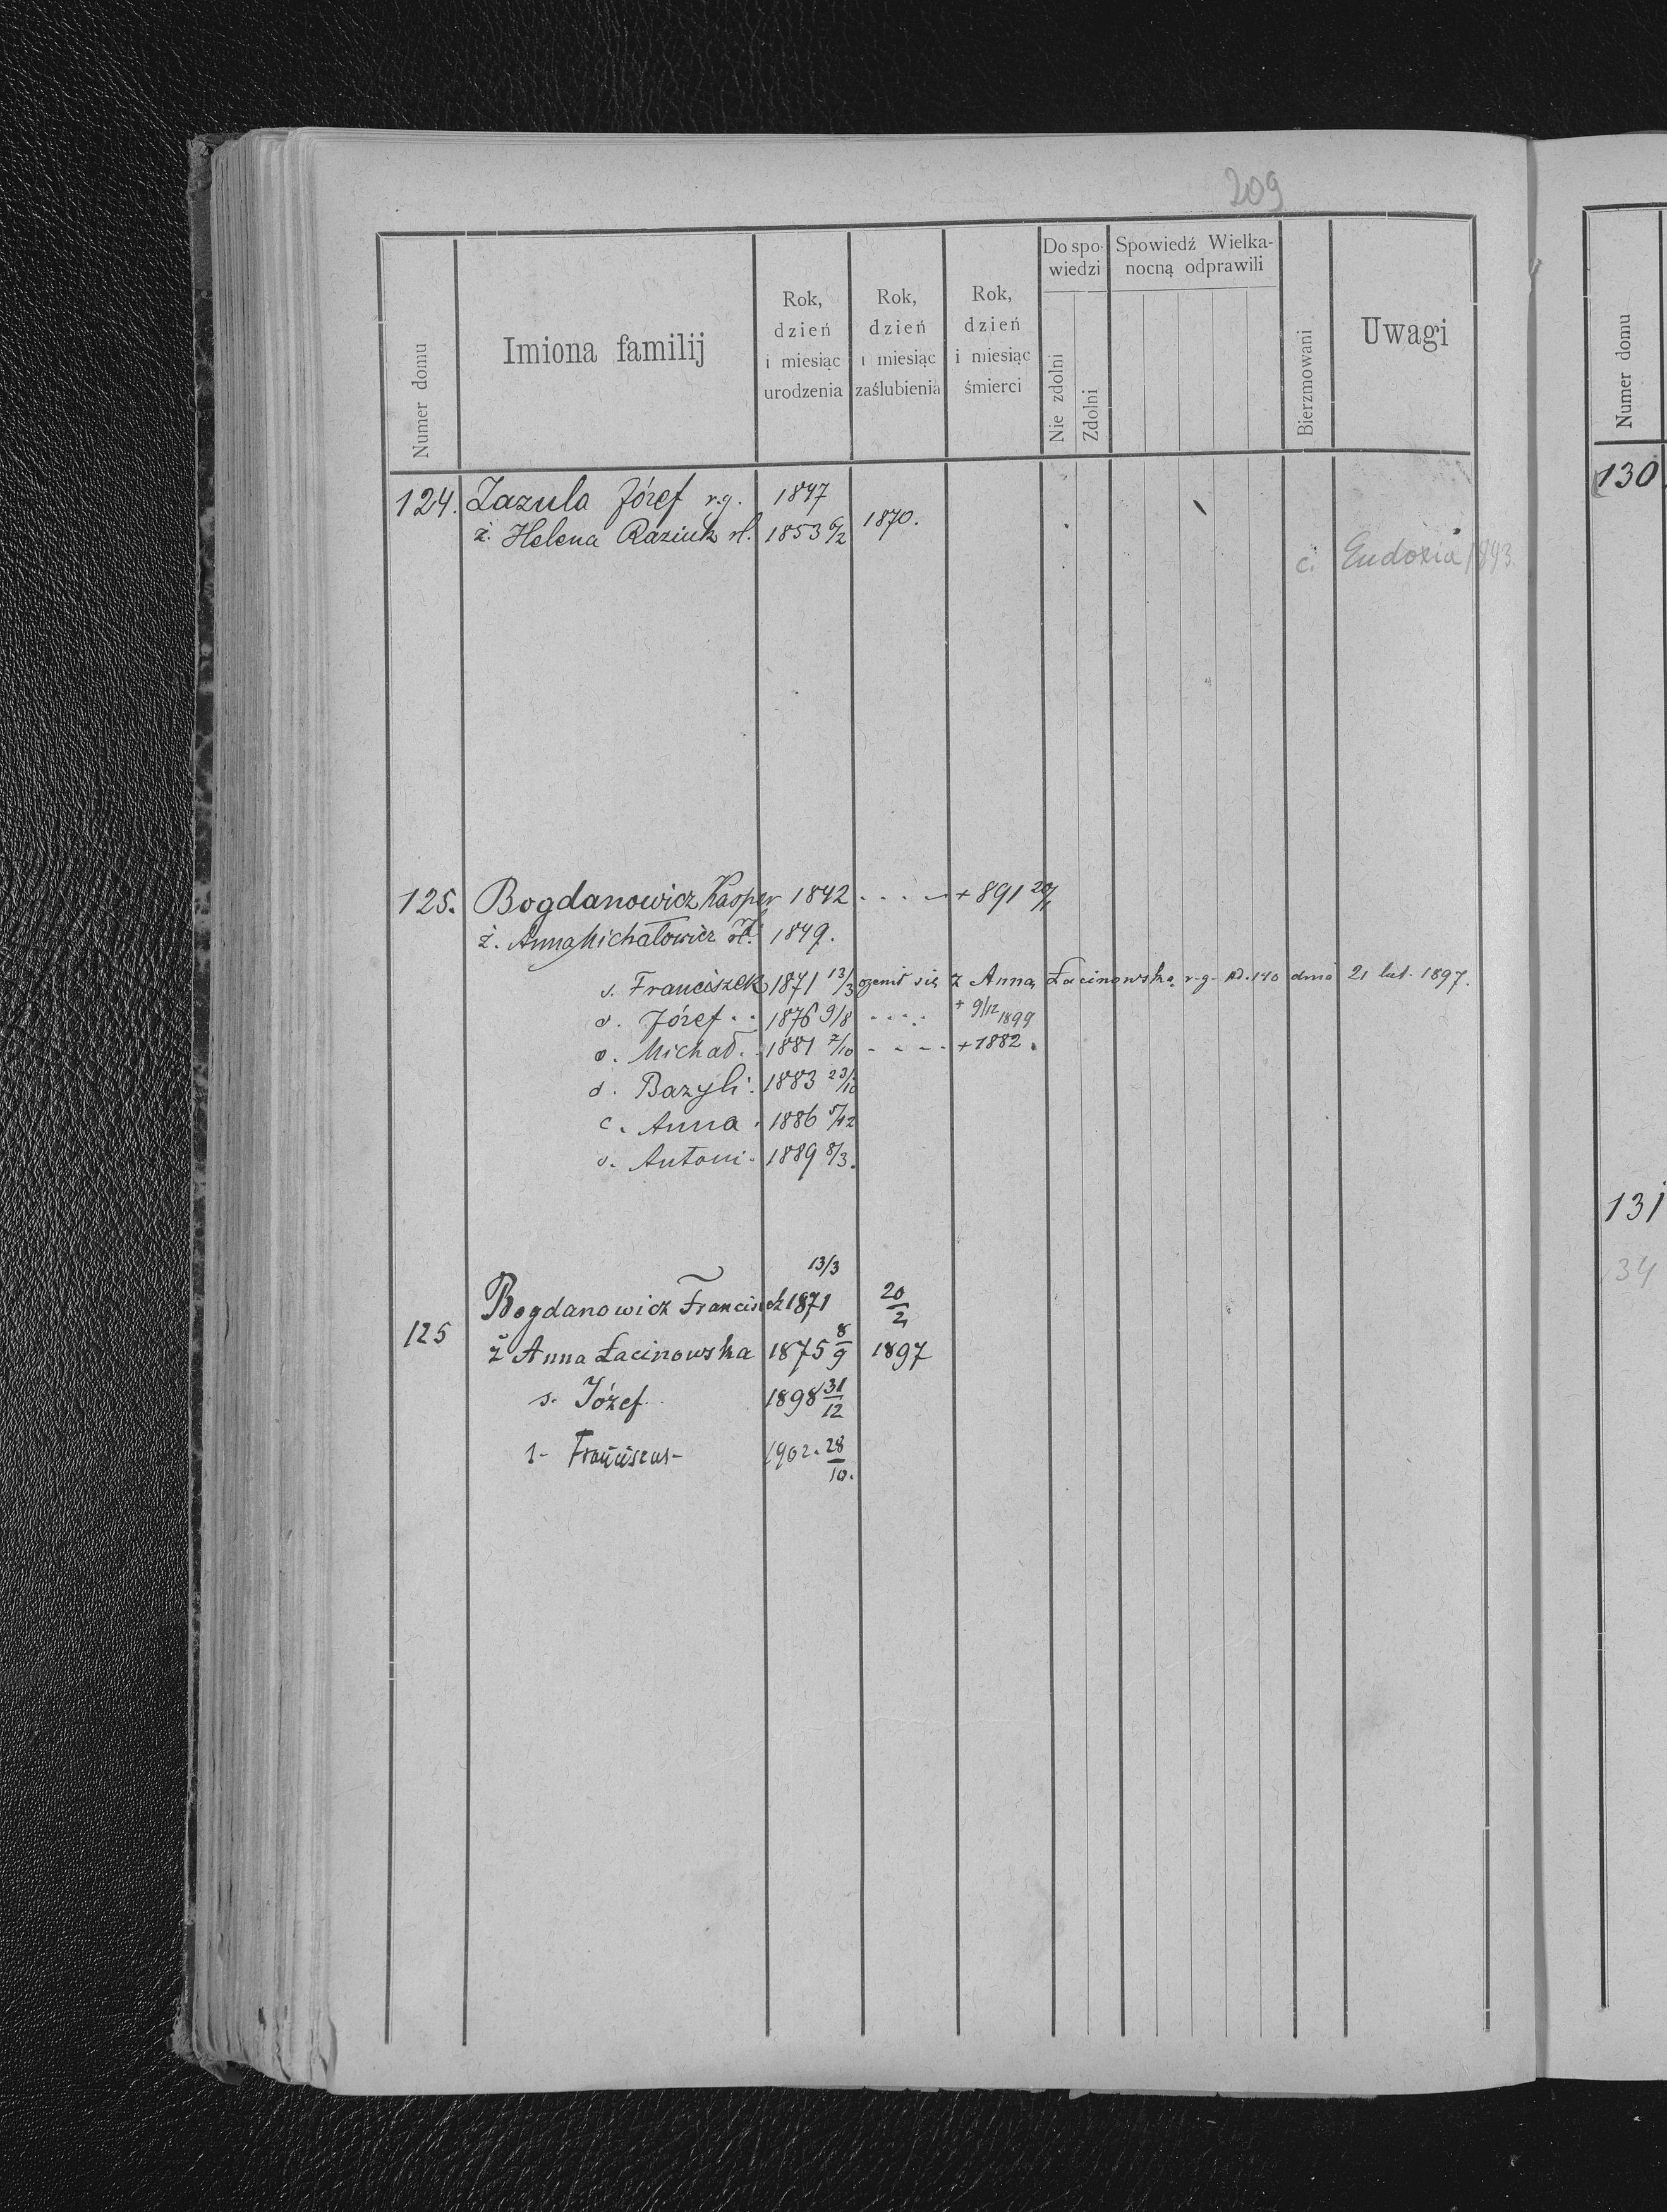 209
Numer domu
Imiona familij
Rok, dzień i miesiąc urodzenia
Rok, dzień i miesiąc zaślubienia
Rok, dzień i miesiąc śmierci
Do spo-wiedzi
Nie zdolni
Zdolni
Spowiedź Wielka-nocną odprawili
Bierzmowani
Uwagi
Numer domu
124. Zazula Józef r.g. 1847
ż. Helena Raziuk rł. 1853 6/2 1870.
c. Eudoxia 1893.
125. Bogdanowicz Kasper 1842 . . . . + 891 20/1
ż. Anna Michałowicz rł. 1849.
s. Franciszek 1871 13/3 ożenił się z Anną Łacinowską r.g. N. 140 dnia 21 lut. 1897.
s. Józef . . 1876 9/8 . . . . + 9/12 1899
s. Michał . 1881 7/10 - - - - + 1882.
s. Bazyli . 1883 23/10
c. Anna . 1886 5/12
s. Antoni . 1889 8/3.
13/3
Bogdanowicz Franciszek 1871 20/2
125
ż Anna Łacinowska 1875 8/9 1897
s. Józef 1898 31/12
s- Franciscus- 1902. 28/10.
130
131
34